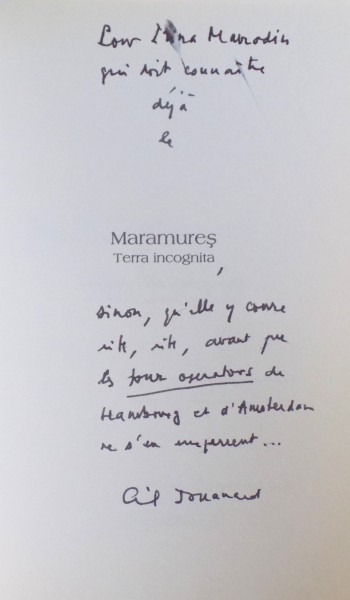 Pour Irina Mavrodin
qui doit connaître
déjà
le
Maramureş
Terra incognita,
sinon, qu'elle y coure
vite, vite, avant que
les tour operators de
Hambourg et d'Amsterdam
ne s'en emparent...
Gil Jouanard